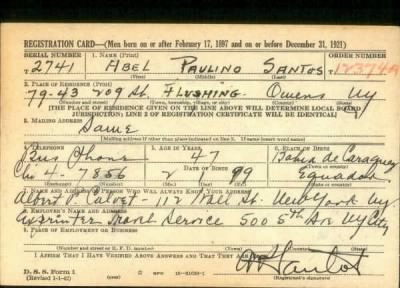 REGISTRATION CARD—(Men born on or after February 17, 1897 and on or before December 31, 1921)
SERIAL NUMBER 1. NAME (Print) ORDER NUMBER
T 2741 ABEL PAULINO SANTOS
(First) (Middle) (Last)
2. PLACE OF RESIDENCE (Print)
79-43 209 St. FLUSHING. Queens NY
(Number and street) (Town, township, village, or city) (County) (State)
[THE PLACE OF RESIDENCE GIVEN ON THE LINE ABOVE WILL DETERMINE LOCAL BOARD
JURISDICTION; LINE 2 OF REGISTRATION CERTIFICATE WILL BE IDENTICAL]
3. MAILING ADDRESS
Same
[Mailing address if other than place indicated on line 2. If same insert word same]
4. TELEPHONE 5. AGE IN YEARS 6. PLACE OF BIRTH
Bus Phone 47 Bahia de Caraquez
4-7856 2 99 Equador
7. NAME AND ADDRESS OF PERSON WHO WILL ALWAYS KNOW YOUR ADDRESS
Albert P. Calvet - 112 Wall St. New York Ny.
8. EMPLOYER'S NAME AND ADDRESS
Exprinter Travel Service 500 5th Av NYCity
9. PLACE OF EMPLOYMENT OR BUSINESS
(Number and street or R. F. D. number) (Town) (County) (State)
I AFFIRM THAT I HAVE VERIFIED ABOVE ANSWERS AND THAT THEY ARE TRUE.
D. S. S. Form 1
(Revised 1-1-42)